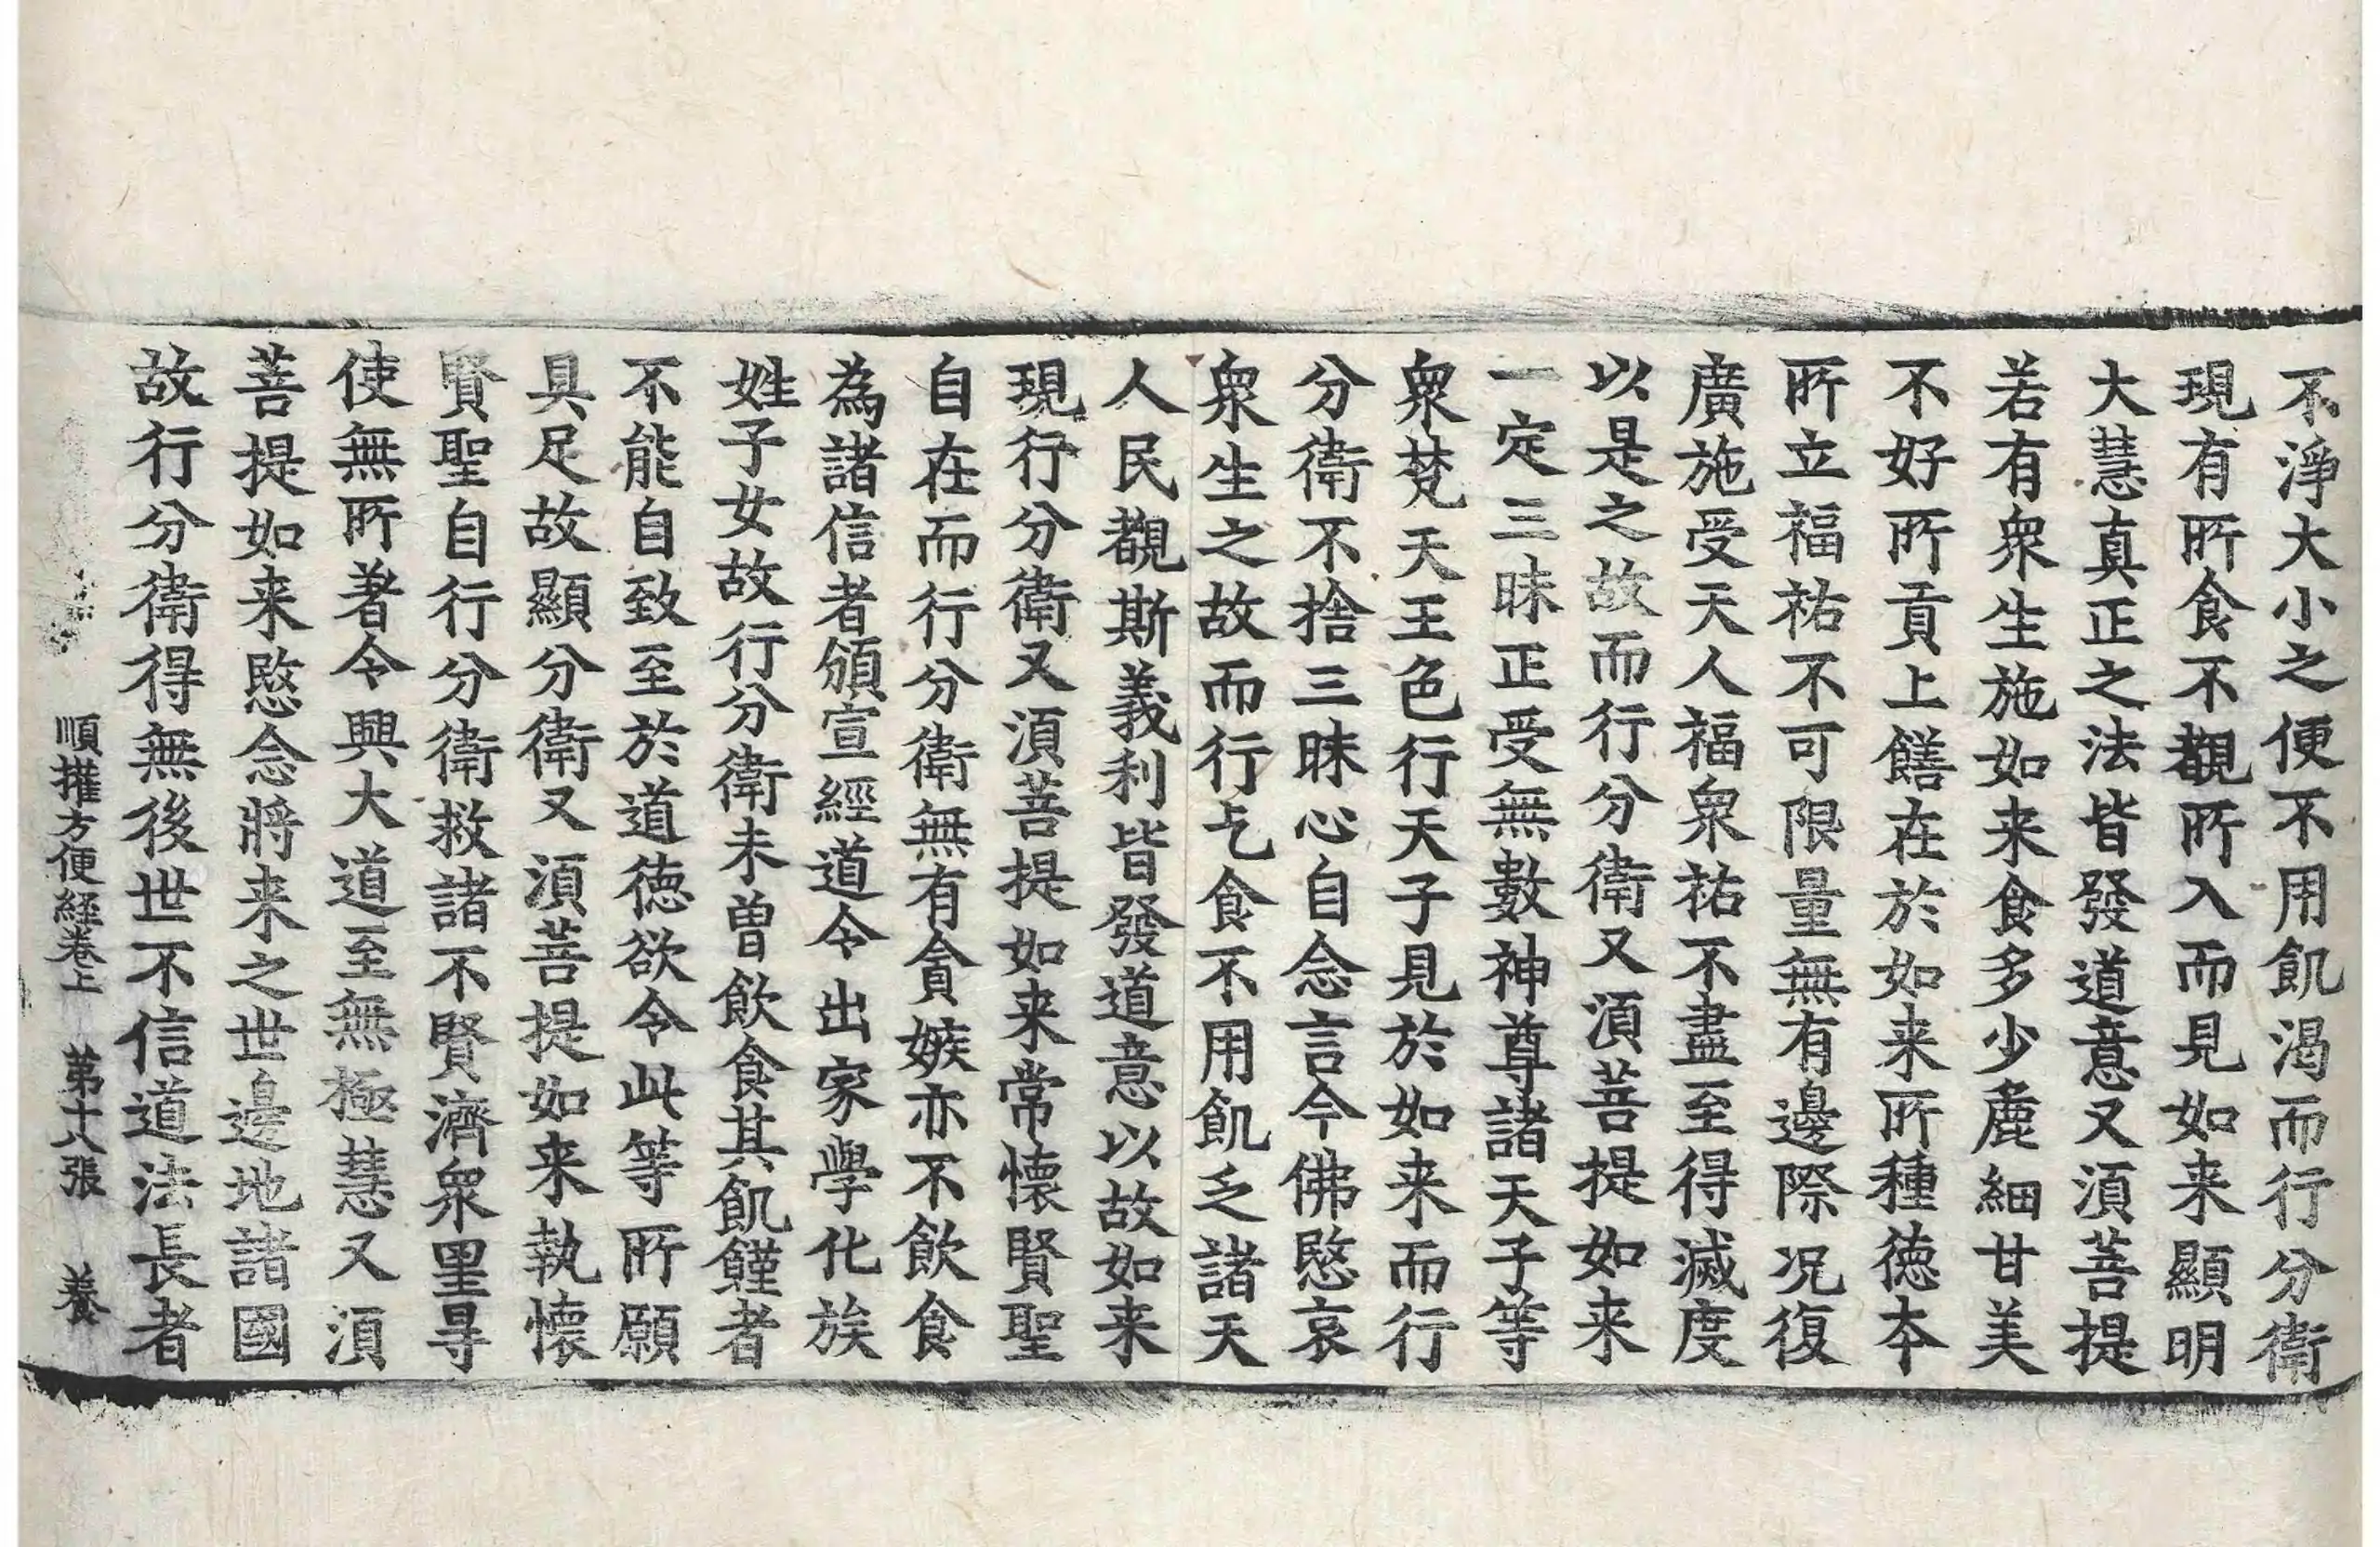 不淨大小之便不用飢渴而行分衛
現有所食不覩所入而見如来顯明
大慧真正之法皆發道意又湏菩提
若有衆生施如来食多少麁細甘美
不好所貢上饍在於如来所種徳本
所立福祐不可限量無有邊際况復
廣施受天人福衆祐不盡至得滅度
以是之故而行分衛又湏菩提如来
一定三昧正受無數神尊諸天子等
衆梵天王色行天子見於如来而行
分衛不捨三昧心自念言今佛愍哀
衆生之故而行乞食不用飢乏諸天
人民覩斯義利皆發道意以故如来
現行分衛又湏菩提如来常懷賢聖
自在而行分衛無有貪嫉亦不飲食
為諸信者頒宣經道令出家學化族
姓子女故行分衛未曽飲食其飢饉者
不能自致至於道徳欲令此等所願
具足故顯分衛又湏菩提如来執懷
賢聖自行分衛救諸不賢濟衆罣㝵
使無所著令興大道至無極慧又湏
菩提如来愍念將来之世邊地諸國
故行分衛得無後世不信道法長者
順權方便経卷上 第十八張 養